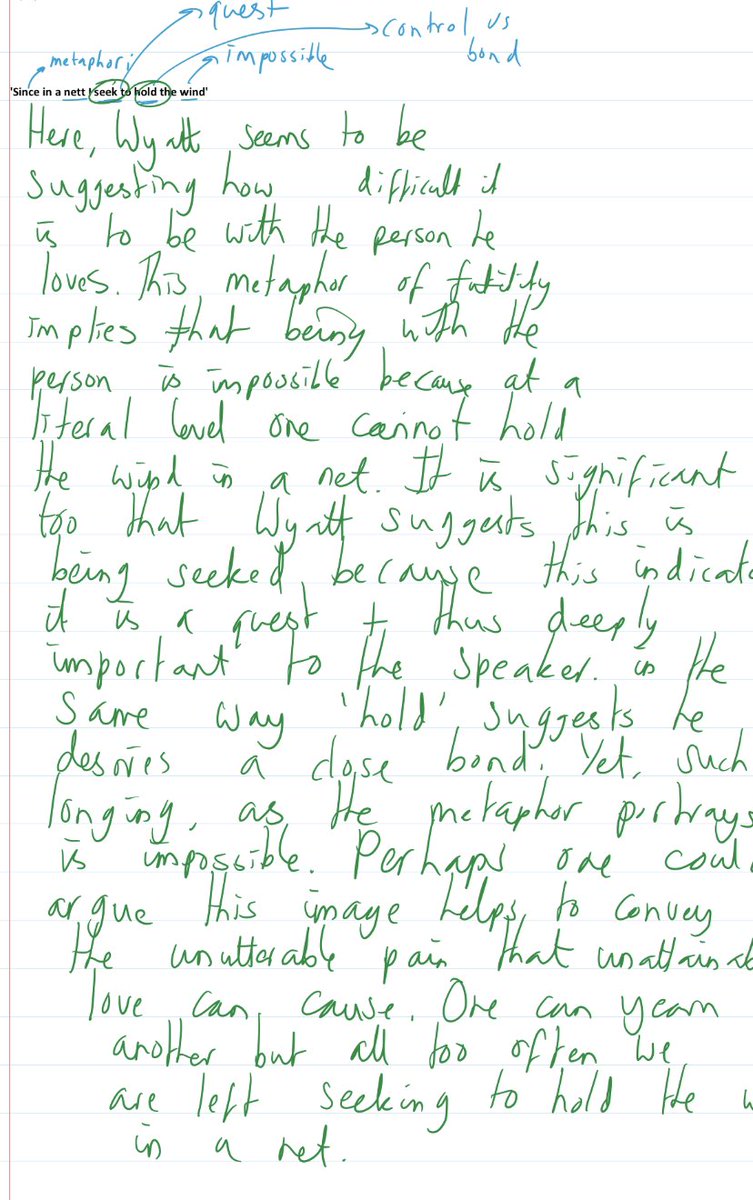 quest
control vs
bond
metaphor
impossible
'Since in a nett I seek to hold the wind'
Here, Wyatt seems to be
suggesting how difficult it
is to be with the person he
loves. This metaphor of futility
implies that being with the
person is impossible because at a
literal level one cannot hold
the wind in a net. It is significant
too that Wyatt suggests this is
being seeked, because this indicat
it is a quest + thus deeply
important to the speaker. in the
same way 'hold' suggests he
desires a close bond. Yet, such
longing, as the metaphor portrays
is impossible. Perhaps one coul
argue this image helps to convey
the unutterable pain that unattainab
love can cause. One can yearn
another but all too often we
are left seeking to hold the w
in a net.